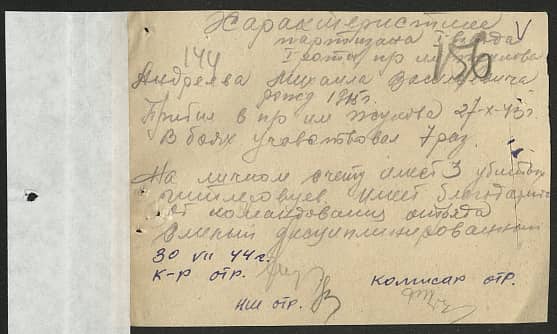 Характеристика
партизана I взвода
I роты пр им Жукова
144
156
Андреева Михаила Васильевича
рожд 1915г.
Прибыл в пр им Жукова 27-X-43г.
В боях учавствовал 7 раз
На личном счету имеет 3 убитых
гитлеровцев имеет благодарность
от командования отряда
Смелый дисциплинированный
30 VII 44г.
К-р отр.
комисар отр.
НШ отр.